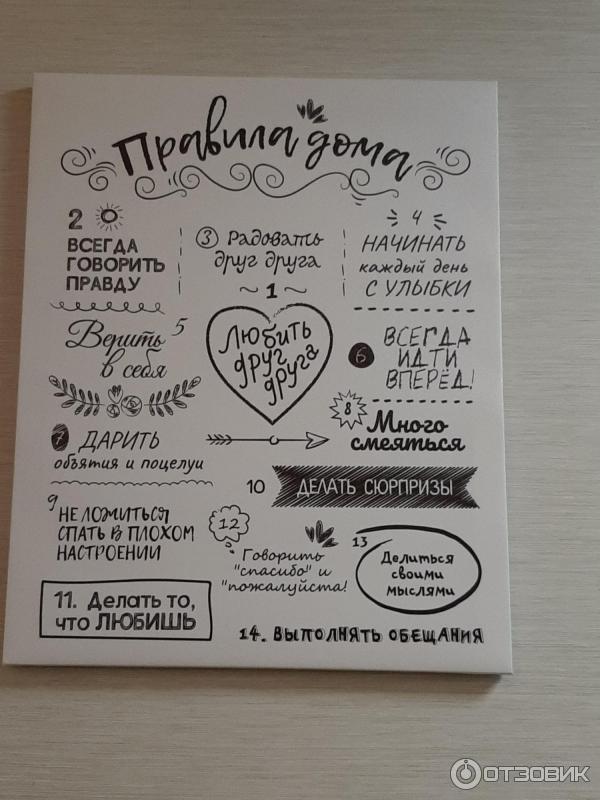 Правила дома
2
ВСЕГДА
ГОВОРИТЬ
ПРАВДУ
3 Радовать
друг друга
4
НАЧИНАТЬ
каждый день
С УЛЫБКИ
~ 1 ~
Любить
друг
друга
5
Верить
в себя
6
ВСЕГДА
ИДТИ
ВПЕРЁД!
7 ДАРИТЬ
объятия и поцелуи
8
Много
смеяться
9
НЕ ЛОЖИТЬСЯ
СПАТЬ В ПЛОХОМ
НАСТРОЕНИИ
10 ДЕЛАТЬ СЮРПРИЗЫ
11. Делать то,
что ЛЮБИШЬ
12
Говорить
"спасибо" и
"пожалуйста!
13
Делиться
своими
мыслями
14. ВЫПОЛНЯТЬ ОБЕЩАНИЯ
ОТЗОВИК